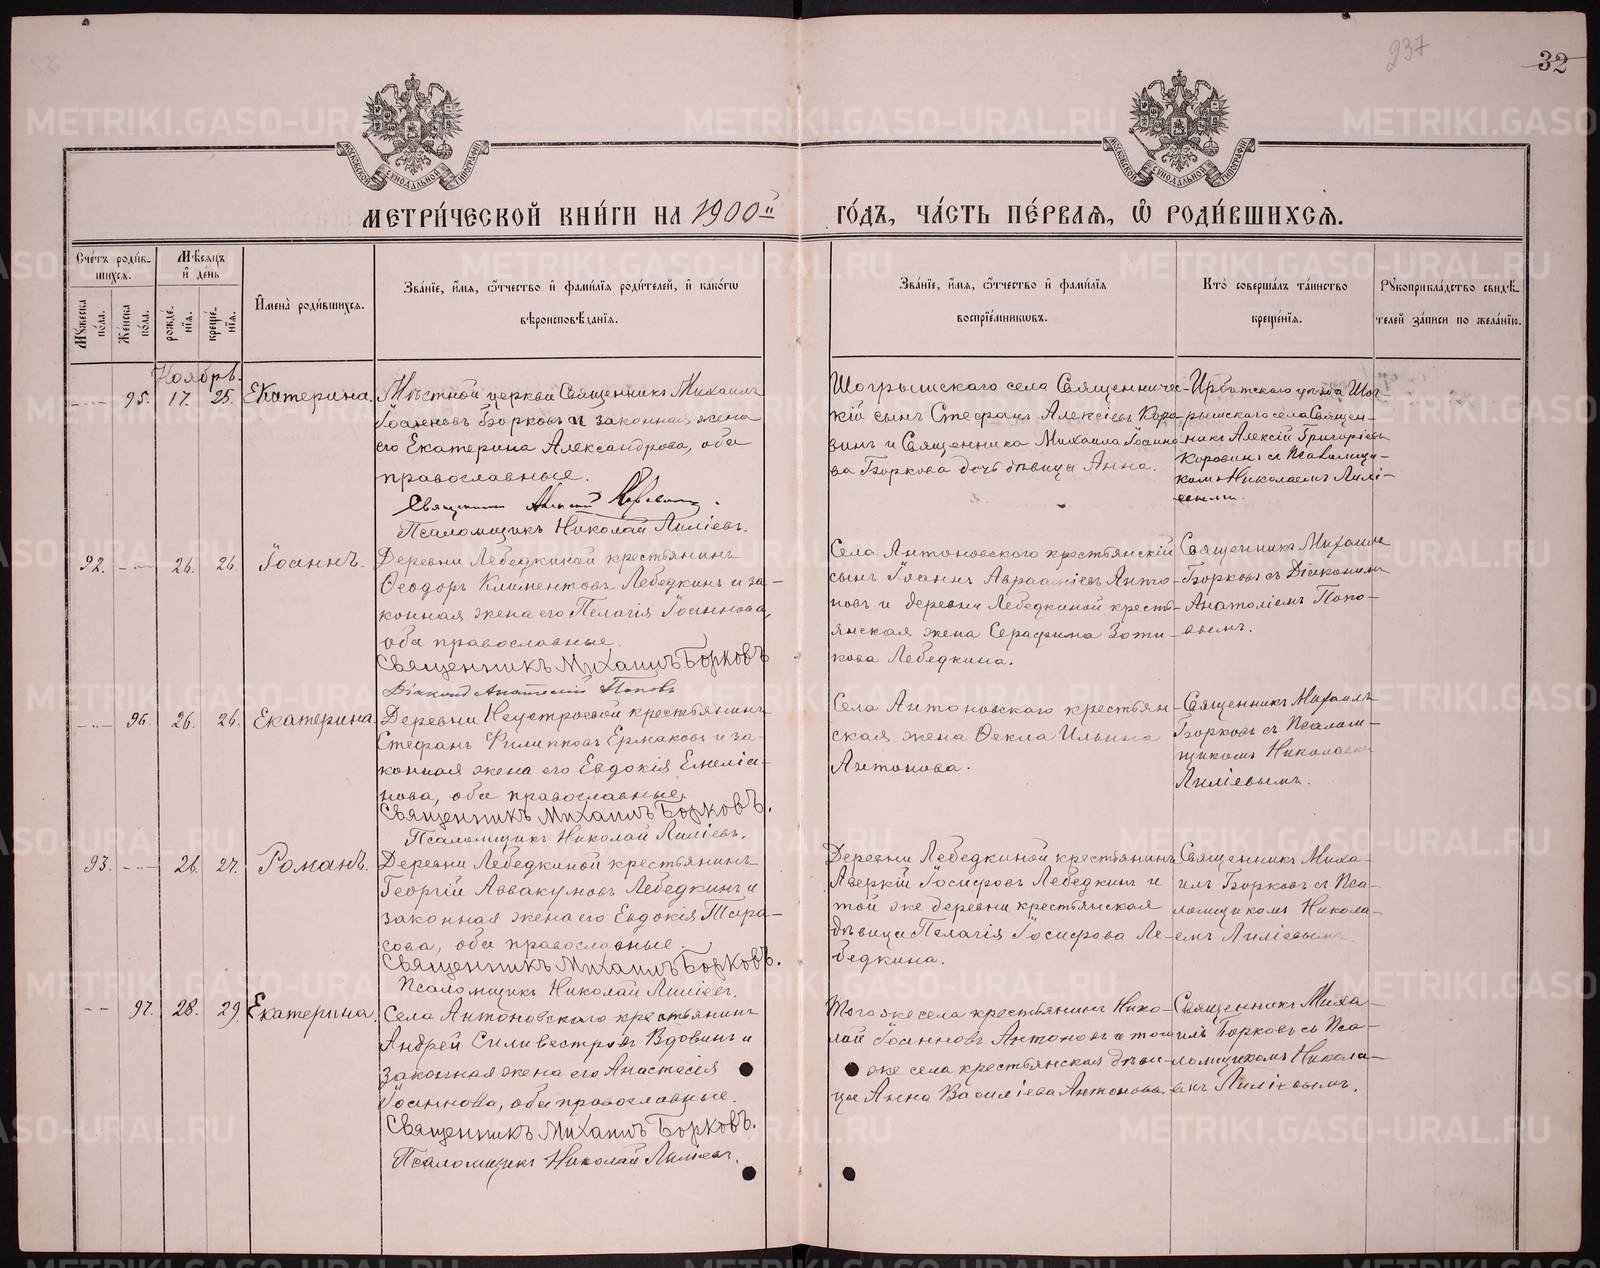 237
32
МОСКОВСКОЙ СѴНОДАЛЬНОЙ ТИПОГРАФІИ
МОСКОВСКОЙ СѴНОДАЛЬНОЙ ТИПОГРАФІИ
МЕТРИ́ЧЕСКОЙ КНИ́ГИ НА 1900й ГО́ДЪ, ЧА́СТЬ ПЕ́РВАѦ, Ѡ҆ РОДИ́ВШИХСѦ.
Сче́тъ роди́в-
шихсѧ.
Мѣ́сѧцъ
и҆ де́нь
Мꙋ́жеска по́ла.
Же́нска по́ла.
рожде́-нїѧ.
креще́-нїѧ.
И҆мена̀ роди́вшихсѧ.
Зва́нїе, и҆́мѧ, ѻ҆́тчество и҆ фами́лїѧ роди́телей, и҆ како́гѡ
вѣроисповѣ́данїѧ.
Зва́нїе, и҆́мѧ, ѻ҆́тчество и҆ фами́лїѧ
воспрїе́мникѡвъ.
Кто̀ соверша́лъ та́инство
креще́нїѧ.
Рꙋкоприкла́дство свидѣ́-
телей за́писи по жела́нїю.
Ноябрь.
95. 17. 25. Екатерина.
Мѣстной церкви Священникъ Михаилъ
Іоанновъ Борковъ и законная жена
его Екатерина Александрова, оба
православные.
Священникъ Алексій Коровинъ.
Псаломщикъ Николай Лиліевъ.
Шогрышскаго села Священничес-
кій сынъ Стефанъ Алексіевъ Коро-
винъ и Священника Михаила Іоанно-
ва Боркова дочь дѣвица Анна.
Ирбитскаго уѣзда Шог-
рышскаго села Священ-
никъ Алексій Григоріевъ
Коровинъ съ Псаломщи-
комъ Николаемъ Лилі-
евымъ.
92. 26. 26. Іоаннъ.
Деревни Лебедкиной крестьянинъ
Ѳеодоръ Климентовъ Лебедкинъ и за-
конная жена его Пелагія Іоаннова,
оба православные.
Священникъ Михаилъ Борковъ
Діаконъ Анатолій Поповъ
Села Антоновскаго крестьянскій
сынъ Іоаннъ Авраамієвъ Анто-
новъ и деревни Лебедкиной кресть-
янская жена Серафима Зоти-
кова Лебедкина.
Священникъ Михаилъ
Борковъ съ Діакономъ
Анатоліемъ Попо-
вымъ.
96. 26. 26. Екатерина.
Деревни Неустроевой крестьянинъ
Стефанъ Филипповъ Ермаковъ и за-
конная жена его Евдокія Емеліа-
нова, оба православные.
Священникъ Михаилъ Борковъ.
Псаломщикъ Николай Лиліевъ.
Села Антоновскаго крестьян-
ская жена Ѳекла Ильина
Антонова.
Священникъ Михаилъ
Борковъ съ Псалом-
щикомъ Николаемъ
Лиліевымъ.
93. 26. 27. Романъ.
Деревни Лебедкиной крестьянинъ
Георгій Аввакумовъ Лебедкинъ и
законная жена его Евдокія Тара-
сова, оба православные.
Священникъ Михаилъ Борковъ.
Псаломщикъ Николай Лиліевъ.
Деревни Лебедкиной крестьянинъ
Аверкій Іосифовъ Лебедкинъ и
той же деревни крестьянская
дѣвица Пелагія Іосифова Ле-
бедкина.
Священникъ Миха-
илъ Борковъ съ Пса-
ломщикомъ Никола-
емъ Лиліевымъ.
97. 28. 29. Екатерина.
Села Антоновскаго крестьянинъ
Андрей Силивестровъ Вдовинъ и
законная жена его Анастасія
Іоаннова, оба православные.
Священникъ Михаилъ Борковъ.
Псаломщикъ Николай Лиліевъ.
Того же села крестьянинъ Нико-
лай Іоанновъ Антоновъ и того
же села крестьянская дѣви-
ца Анна Василіева Антонова.
Священникъ Миха-
илъ Борковъ съ Пса-
ломщикомъ Никола-
емъ Лиліевымъ.
METRIKI.GASO-URAL.RU